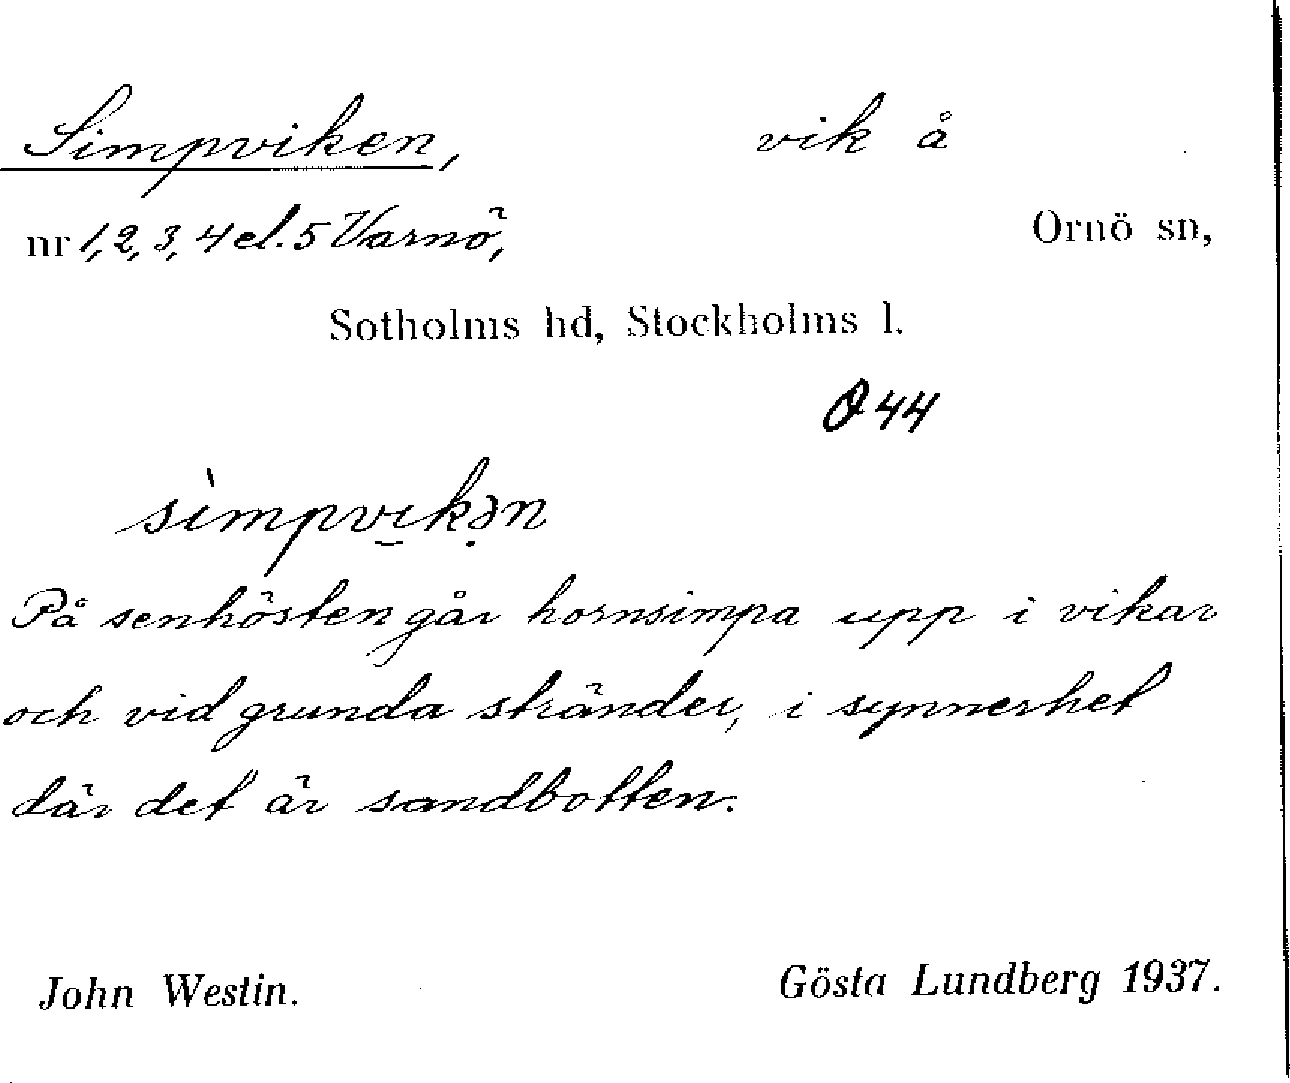 Simpviken, vik å
nr 1, 2, 3, 4 el. 5 Varnö, Ornö sn,
Sotholms hd, Stockholms l.
Ö 44
sìmpvi̱kə̣n
På senhösten går hornsimpa upp i vikar
och vid grunda stränder, i synnerhet
där det är sandbotten.
John Westin. Gösta Lundberg 1937.